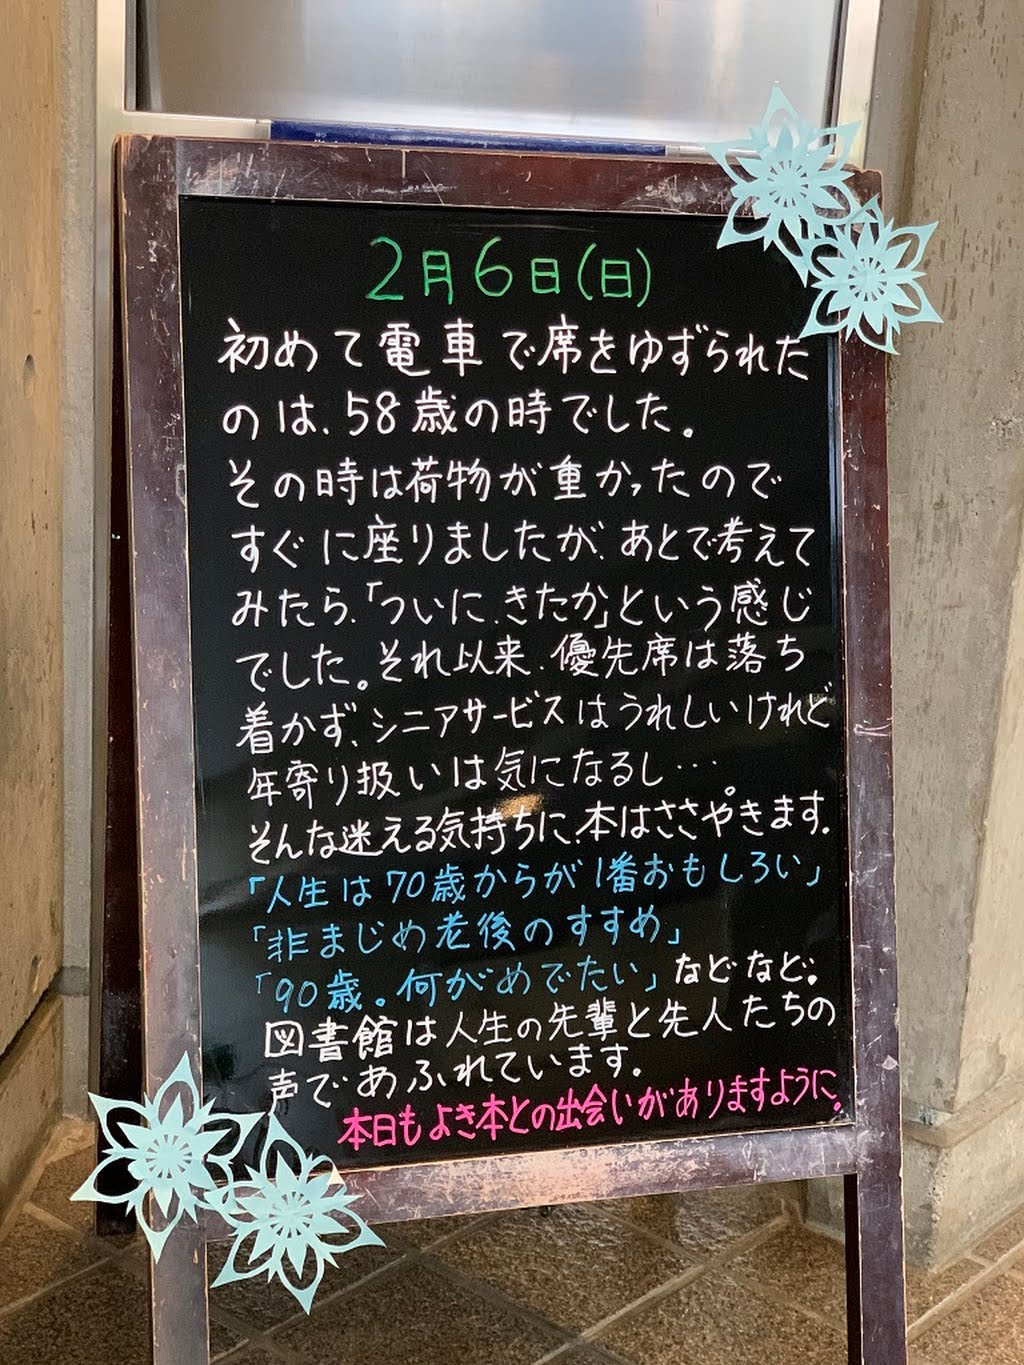 2月6日(日)
初めて電車で席をゆずられた
のは、58歳の時でした。
その時は荷物が重かったので
すぐに座りましたが、あとで考えて
みたら、「ついに、きたか」という感じ
でした。それ以来、優先席は落ち
着かず、シニアサービスはうれしいけれど
年寄り扱いは気になるし…。
そんな迷える気持ちに、本はささやきます。
「人生は70歳からが1番おもしろい」
「非まじめ老後のすすめ」
「90歳。何がめでたい」などなど。
図書館は人生の先輩と先人たちの
声であふれています。
本日もよき本との出会いがありますように。